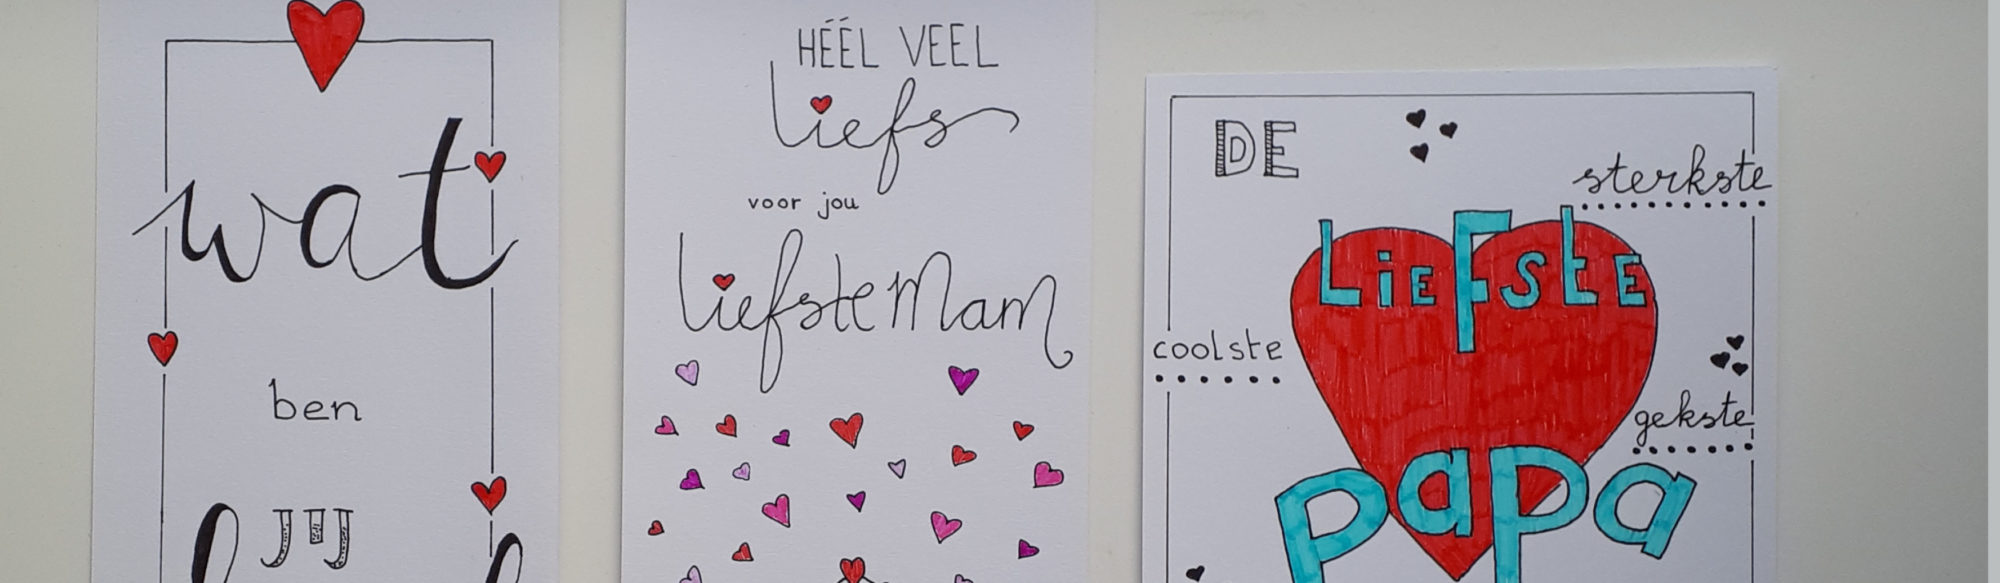 wat
ben
JIJ
HÉÉL VEEL
liefs
voor jou
liefste Mam
DE
sterkste
LiEFStE
coolste
gekste
papa